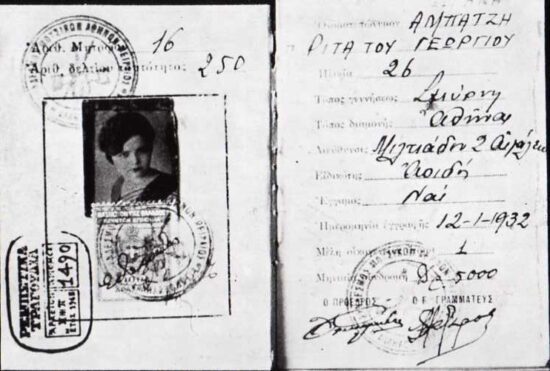 Αριθ. Μητρώου 16
Αριθ. δελτίου ταυτότητος 250
ΡΕΜΠΕΤΙΚΑ
ΤΡΑΓΟΥΔΙΑ
1490
ΑΜΠΑΤΖΗ
ΡΙΤΑ ΤΟΥ ΓΕΩΡΓΙΟΥ
Ηλικία 26
Τόπος γεννήσεως Σμύρνη
Τόπος διαμονής Αθήναι
Διεύθυνσις Μιλτιάδου 2 Αιγάλεω
Ειδικότης Αοιδή
Έγγαμος Ναί
Ημερομηνία εγγραφής 12-1-1932
Μέλη 1
Δρ 5000
Ο ΠΡΟΕΔΡΟΣ Ο Γ. ΓΡΑΜΜΑΤΕΥΣ